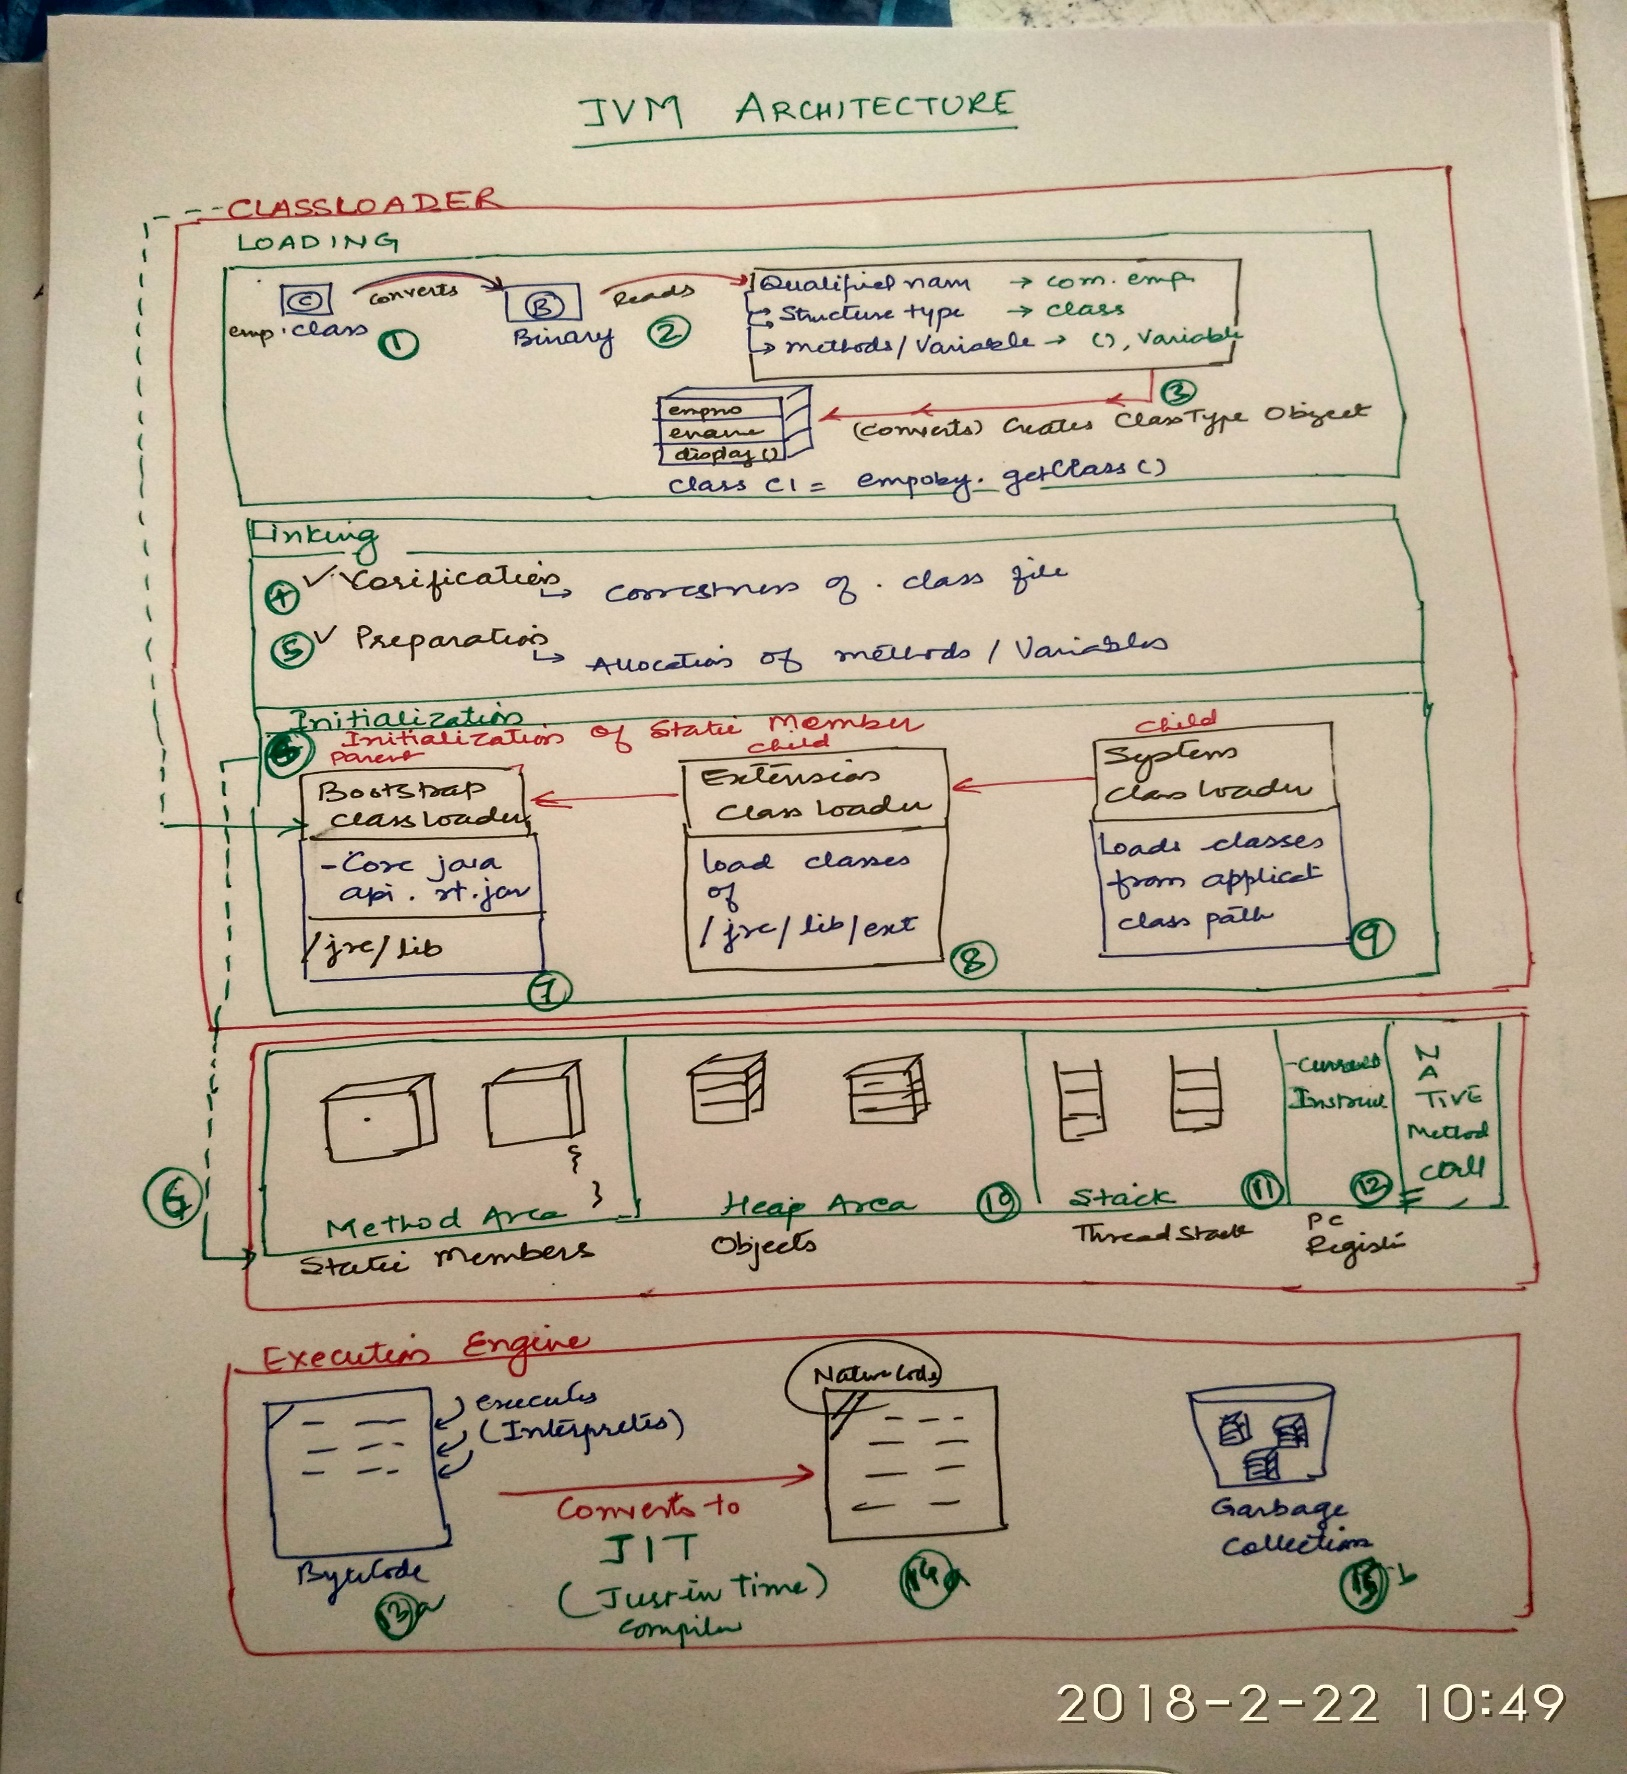 JVM ARCHITECTURE
CLASSLOADER
LOADING
C converts B Reads
emp.class 1 Binary 2
Qualified nam → com.emp
Structure type → class
methods/Variable → (), Variable
3
empno
ename
display()
(converts) Creates ClassType Object
class C1 = empobj.getClass()
Linking
4 ✓ Verification ↳ correctness of .class file
5 ✓ Preparation ↳ Allocation of methods / Variables
Initialization
6 Initialization of Static Member
Parent
Bootstrap
class loader
-Core java
api. rt.jar
/jre/lib
7
child
Extension
Class Loader
load classes
of
/jre/lib/ext
8
child
System
class loader
Loads classes
from applicat
class path
9
6
Method Area
Static Members
Heap Area 10
Objects
Stack 11
Thread Stack
-Current
Instruc
12
PC
Register
N
A
TIVE
Method
call
Execution Engine
executes
(Interpretes)
ByteCode
13a
Converts to
JIT
(Just in Time)
compiler
Native Code
14a
Garbage
Collection
15b
2018-2-22 10:49